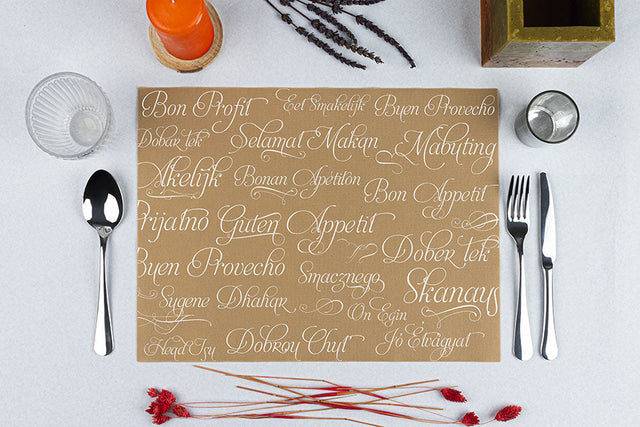 Bon Profit Eet Smakelijk Buen Provecho
Dobar tek Selamat Makan Mabuting
Akelijk Bonan Apétiton Bon Appetit
Prijatno Guten Appetit Dober tek
Buen Provecho Smacznego Skanaus
Sygene Dhahar On Egin
Head Isu Dobrou Chut Jó Étvágyat